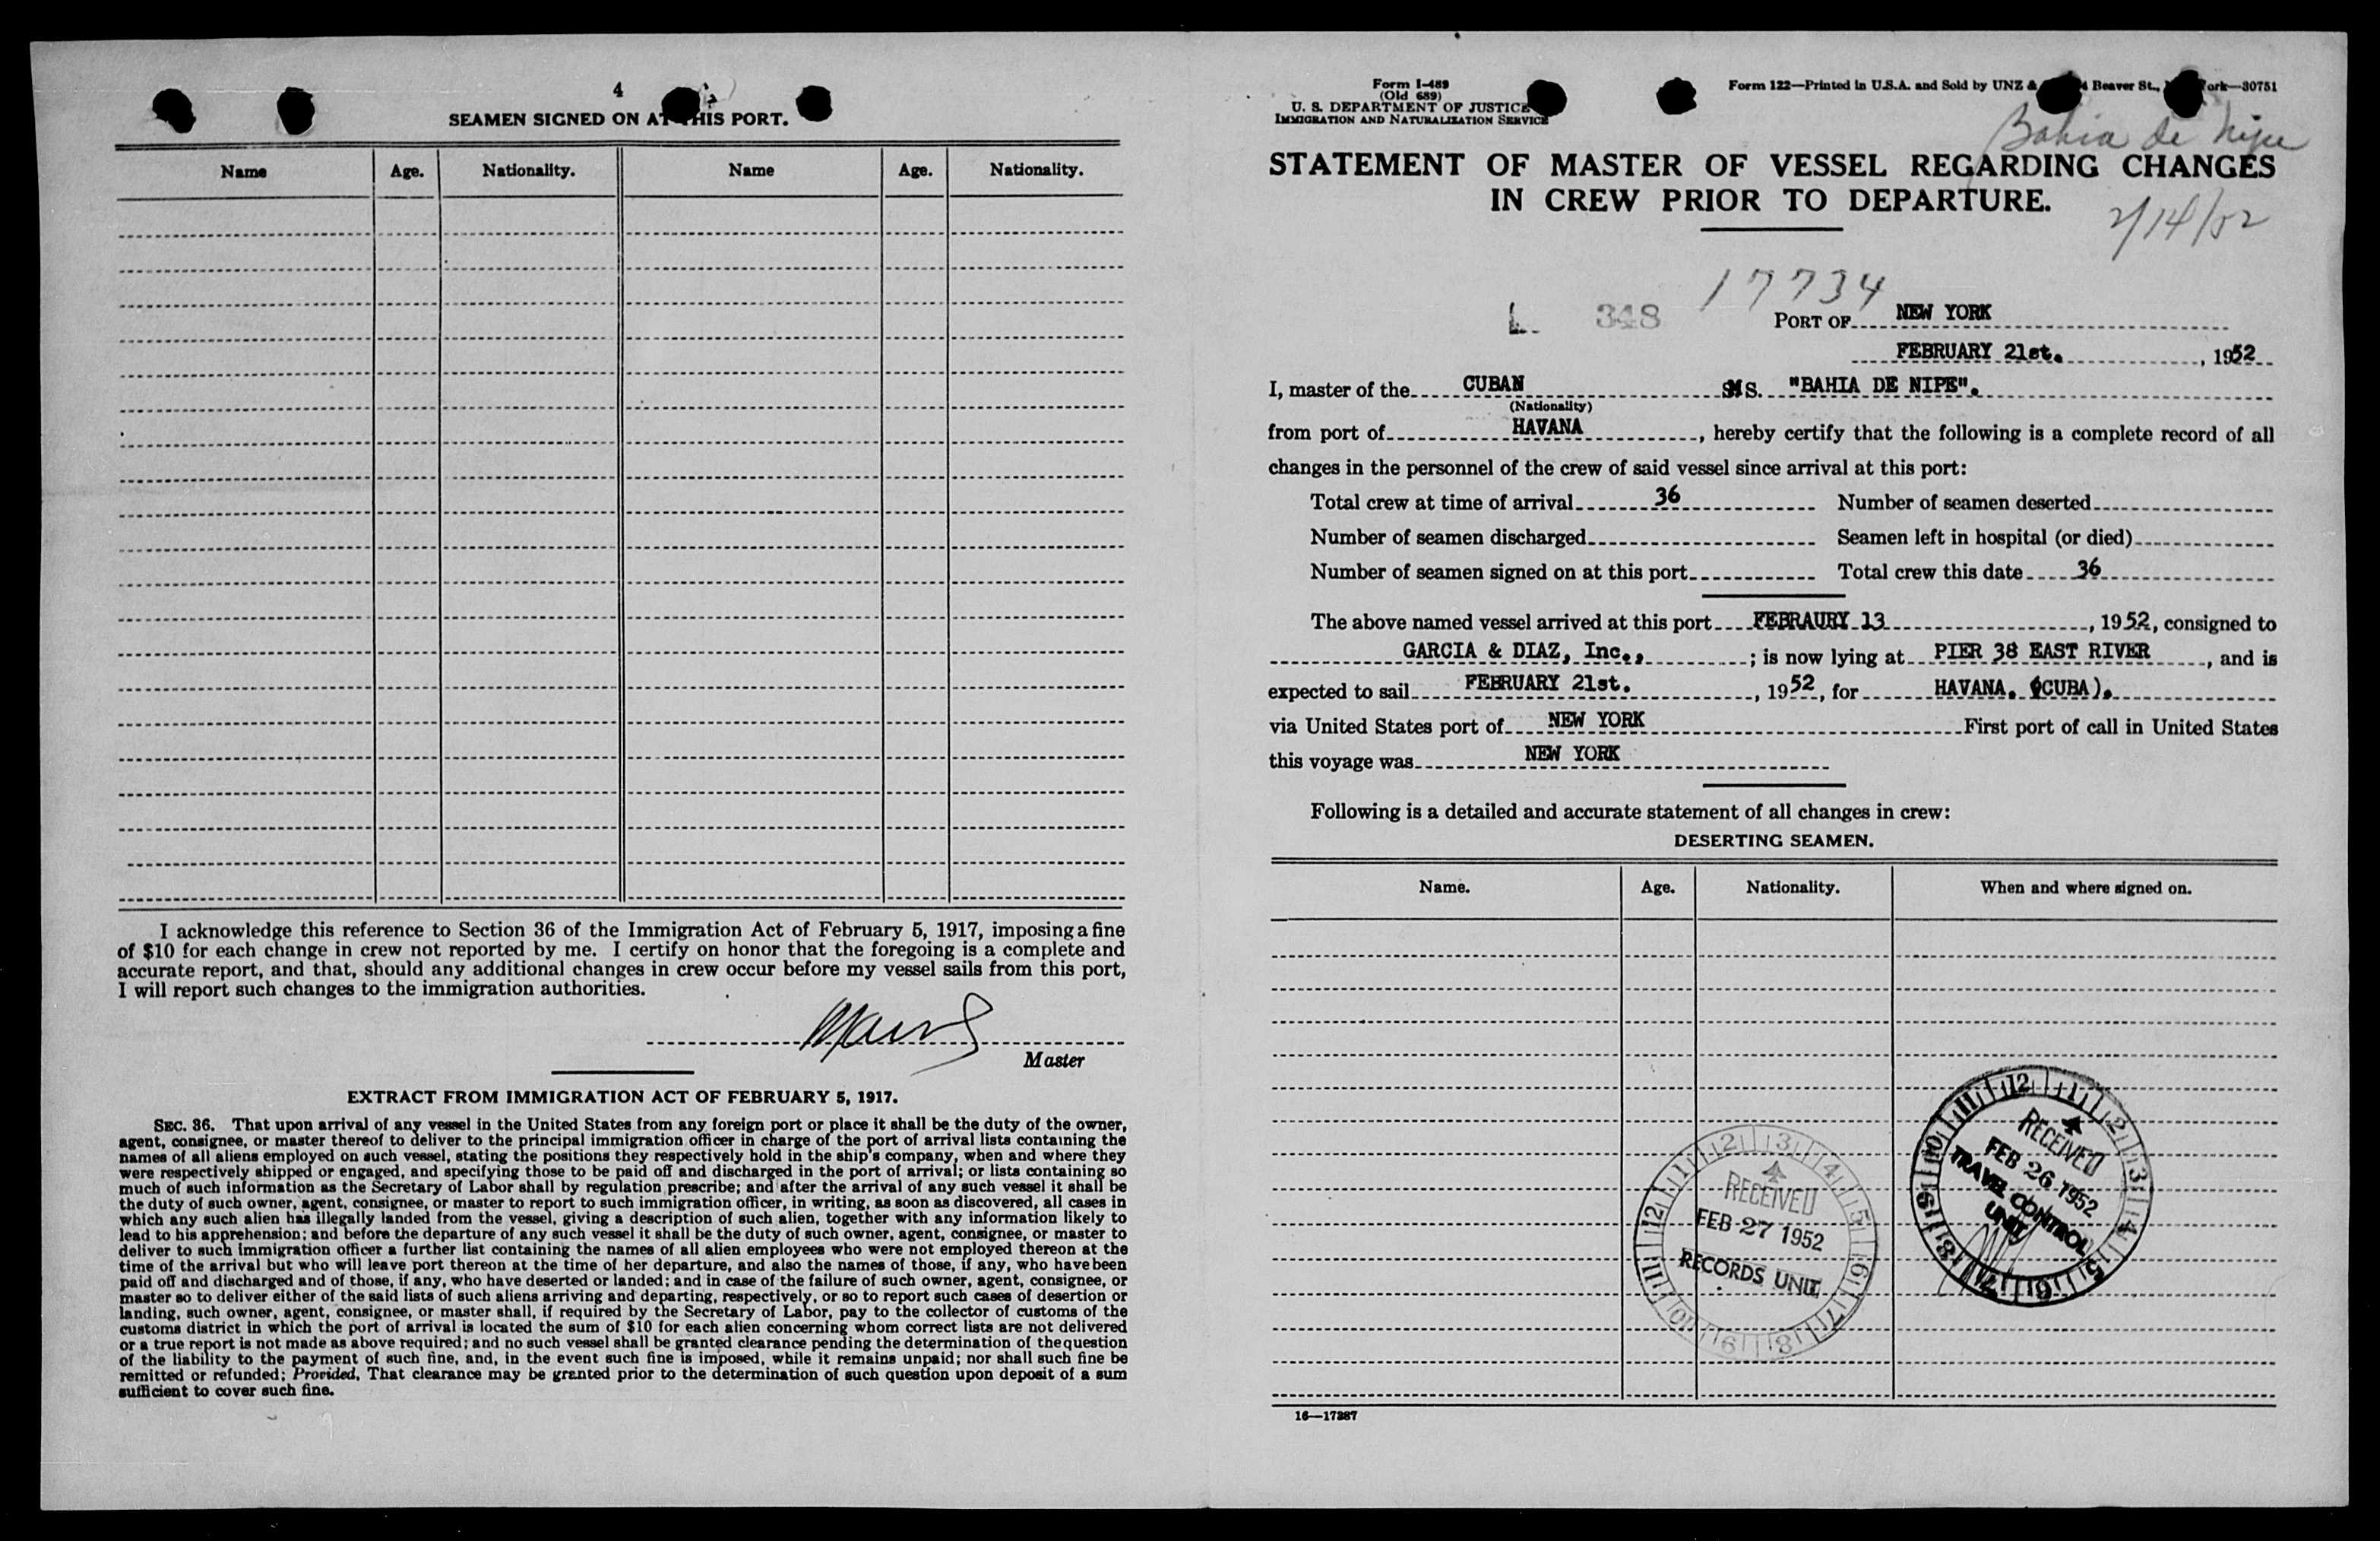 4
SEAMEN SIGNED ON AT THIS PORT.
Name Age. Nationality. Name Age. Nationality.
I acknowledge this reference to Section 36 of the Immigration Act of February 5, 1917, imposing a fine
of $10 for each change in crew not reported by me. I certify on honor that the foregoing is a complete and
accurate report, and that, should any additional changes in crew occur before my vessel sails from this port,
I will report such changes to the immigration authorities.
Master
EXTRACT FROM IMMIGRATION ACT OF FEBRUARY 5, 1917.
SEC. 36. That upon arrival of any vessel in the United States from any foreign port or place it shall be the duty of the owner,
agent, consignee, or master thereof to deliver to the principal immigration officer in charge of the port of arrival lists containing the
names of all aliens employed on such vessel, stating the positions they respectively hold in the ship's company, when and where they
were respectively shipped or engaged, and specifying those to be paid off and discharged in the port of arrival; or lists containing so
much of such information as the Secretary of Labor shall by regulation prescribe; and after the arrival of any such vessel it shall be
the duty of such owner, agent, consignee, or master to report to such immigration officer, in writing, as soon as discovered, all cases in
which any such alien has illegally landed from the vessel, giving a description of such alien, together with any information likely to
lead to his apprehension; and before the departure of any such vessel it shall be the duty of such owner, agent, consignee, or master to
deliver to such immigration officer a further list containing the names of all alien employees who were not employed thereon at the
time of the arrival but who will leave port thereon at the time of her departure, and also the names of those, if any, who have been
paid off and discharged and of those, if any, who have deserted or landed; and in case of the failure of such owner, agent, consignee, or
master so to deliver either of the said lists of such aliens arriving and departing, respectively, or so to report such cases of desertion or
landing, such owner, agent, consignee, or master shall, if required by the Secretary of Labor, pay to the collector of customs of the
customs district in which the port of arrival is located the sum of $10 for each alien concerning whom correct lists are not delivered
or a true report is not made as above required; and no such vessel shall be granted clearance pending the determination of the question
of the liability to the payment of such fine, and, in the event such fine is imposed, while it remains unpaid; nor shall such fine be
remitted or refunded; Provided, That clearance may be granted prior to the determination of such question upon deposit of a sum
sufficient to cover such fine.
Form I-489
(Old 689)
U. S. DEPARTMENT OF JUSTICE
IMMIGRATION AND NATURALIZATION SERVICE
Form 122—Printed in U.S.A. and Sold by UNZ & Beaver St., York—30751
Bahia de Nipe
STATEMENT OF MASTER OF VESSEL REGARDING CHANGES
IN CREW PRIOR TO DEPARTURE.
2/14/52
17734
L 348
PORT OF NEW YORK
FEBRUARY 21st. , 1952
I, master of the CUBAN MS. "BAHIA DE NIPE".
(Nationality)
from port of HAVANA , hereby certify that the following is a complete record of all
changes in the personnel of the crew of said vessel since arrival at this port:
Total crew at time of arrival 36 Number of seamen deserted
Number of seamen discharged Seamen left in hospital (or died)
Number of seamen signed on at this port Total crew this date 36
The above named vessel arrived at this port FEBRAURY 13 , 1952, consigned to
GARCIA & DIAZ, Inc., ; is now lying at PIER 38 EAST RIVER , and is
expected to sail FEBRUARY 21st. , 1952, for HAVANA. (CUBA).
via United States port of NEW YORK First port of call in United States
this voyage was NEW YORK
Following is a detailed and accurate statement of all changes in crew:
DESERTING SEAMEN.
Name. Age. Nationality. When and where signed on.
12 1 2 3 4 5 6 7 8 9 10 11
RECEIVED
FEB 26 1952
TRAVEL CONTROL
UNIT
12 1 2 3 4 5 6 7 8 9 10 11
RECEIVED
FEB 27 1952
RECORDS UNIT
16—17387